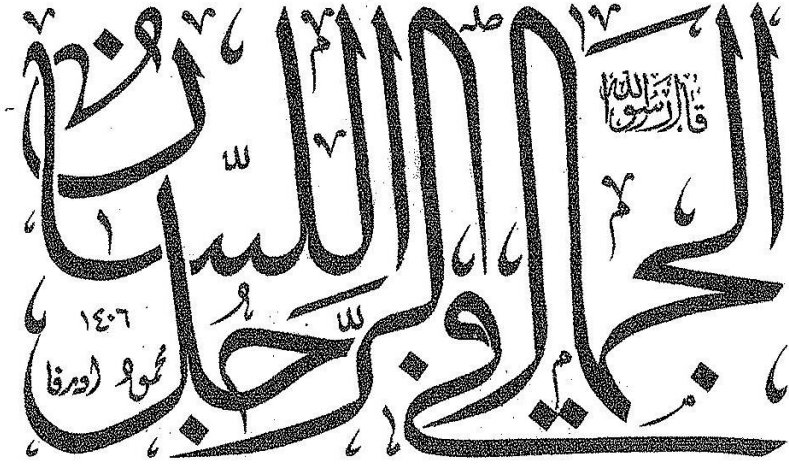 قال رسول الله
الجمال في الرجل اللسان
١٤٠٦
محمود اورفا